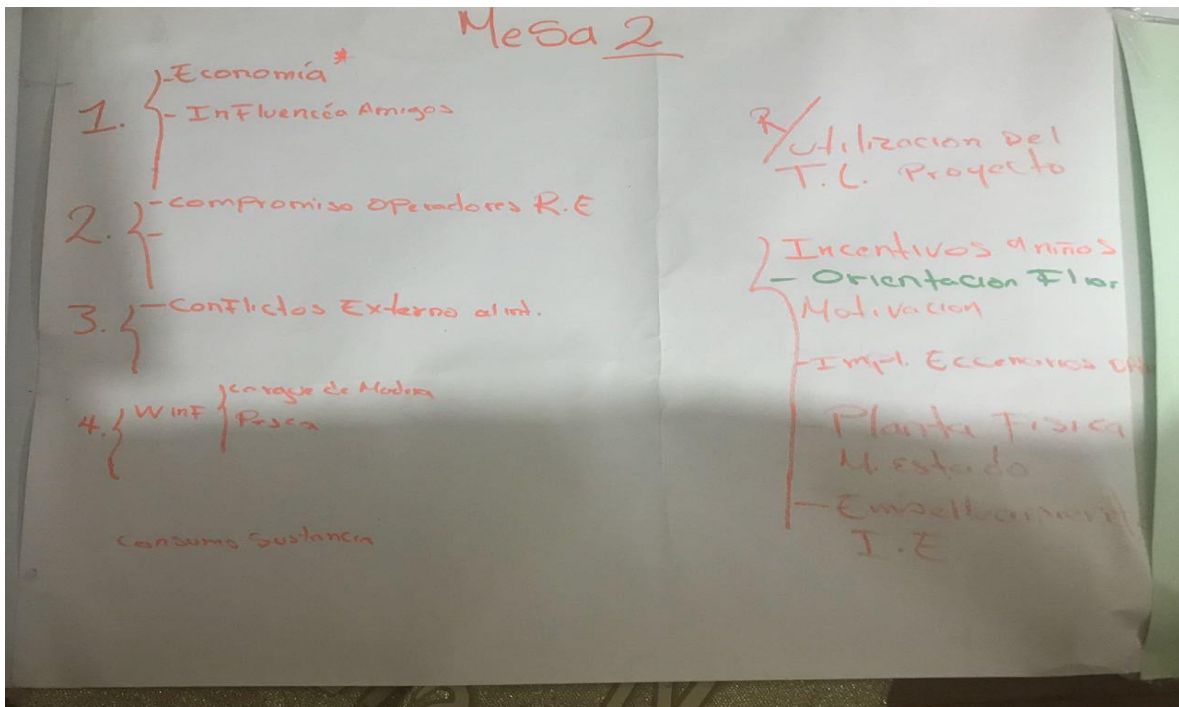 Mesa 2
1. - Economía *
- Influencia Amigos
2. - compromiso operadores R.E
-
3. - Conflictos Externo al int.
4. W inf
Pesca
Consumo Sustancia
R/ utilizacion Del
T.L. Proyecto
Incentivos a niños
- Orientacion
Motivacion
- Impl. Eccenarios
Planta Fisica
M. Estado
- 
I.E